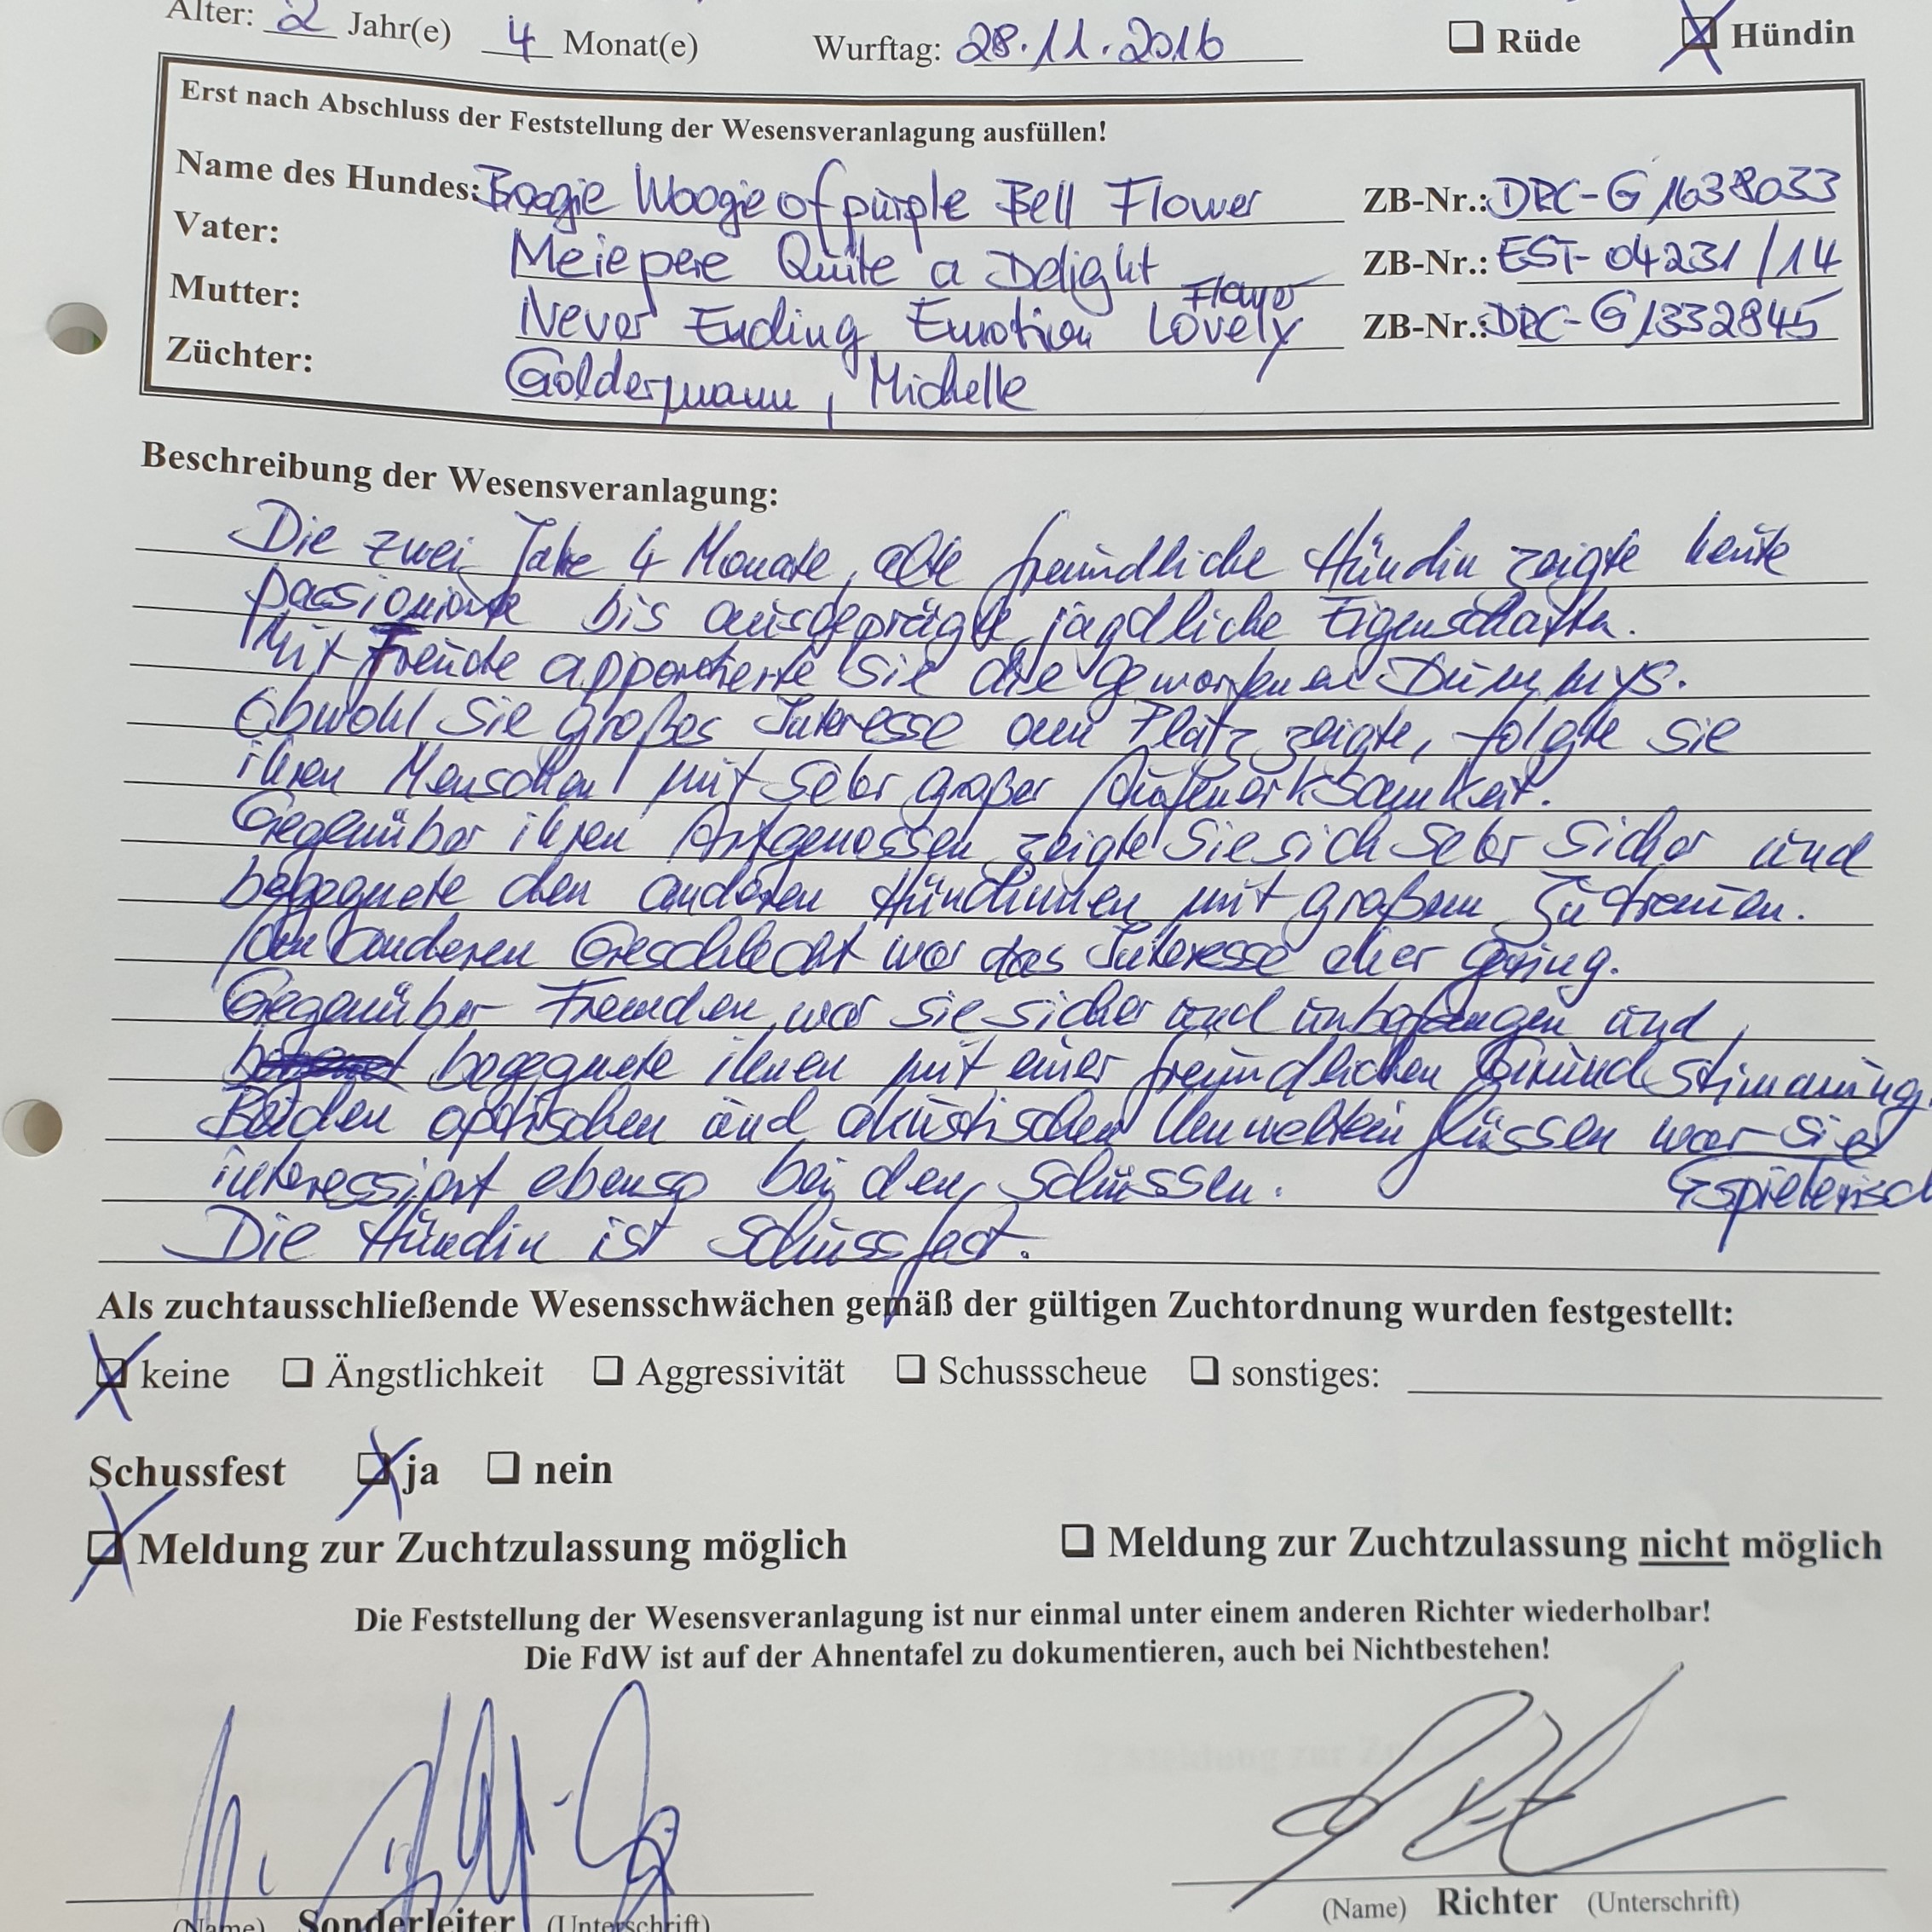 Alter: 2 Jahr(e) 4 Monat(e) Wurftag: 28.11.2016 ❑ Rüde ☒ Hündin
Erst nach Abschluss der Feststellung der Wesensveranlagung ausfüllen!
Name des Hundes: Boogie Woogie of purple Bell Flower ZB-Nr.: DRC-G 1638033
Vater: Meiepere Quite a Delight ZB-Nr.: EST-04231/14
Flower
Mutter: Never Ending Emotion Lovely ZB-Nr.: DRC-G 1332845
Züchter: Goldermann, Michelle
Beschreibung der Wesensveranlagung:
Die zwei Jahre 4 Monate, alte freundliche Hündin zeigte heute
passionierte bis ausgeprägte jagdliche Eigenschaften.
Mit Freude apportierte sie die geworfenen Dummys.
Obwohl sie großes Interesse am Platz zeigte, folgte sie
ihren Menschen mit sehr großer Aufmerksamkeit.
Gegenüber ihren Artgenossen zeigte sie sich sehr sicher und
begegnete den anderen Hündinnen mit großem Zutrauen.
Am anderen Geschlecht war das Interesse eher gering.
Gegenüber Fremden war sie sicher und unbefangen und
begegnete ihnen mit einer freundlichen Grundstimmung.
Bei den optischen und akustischen Umwelteinflüssen war sie
spielerisch
interessiert ebenso bei den Schüssen.
Die Hündin ist schussfest.
Als zuchtausschließende Wesensschwächen gemäß der gültigen Zuchtordnung wurden festgestellt:
☒ keine ❑ Ängstlichkeit ❑ Aggressivität ❑ Schussscheue ❑ sonstiges:
Schussfest ☒ ja ❑ nein
☒ Meldung zur Zuchtzulassung möglich ❑ Meldung zur Zuchtzulassung nicht möglich
Die Feststellung der Wesensveranlagung ist nur einmal unter einem anderen Richter wiederholbar!
Die FdW ist auf der Ahnentafel zu dokumentieren, auch bei Nichtbestehen!
(Name) Sonderleiter (Unterschrift) (Name) Richter (Unterschrift)